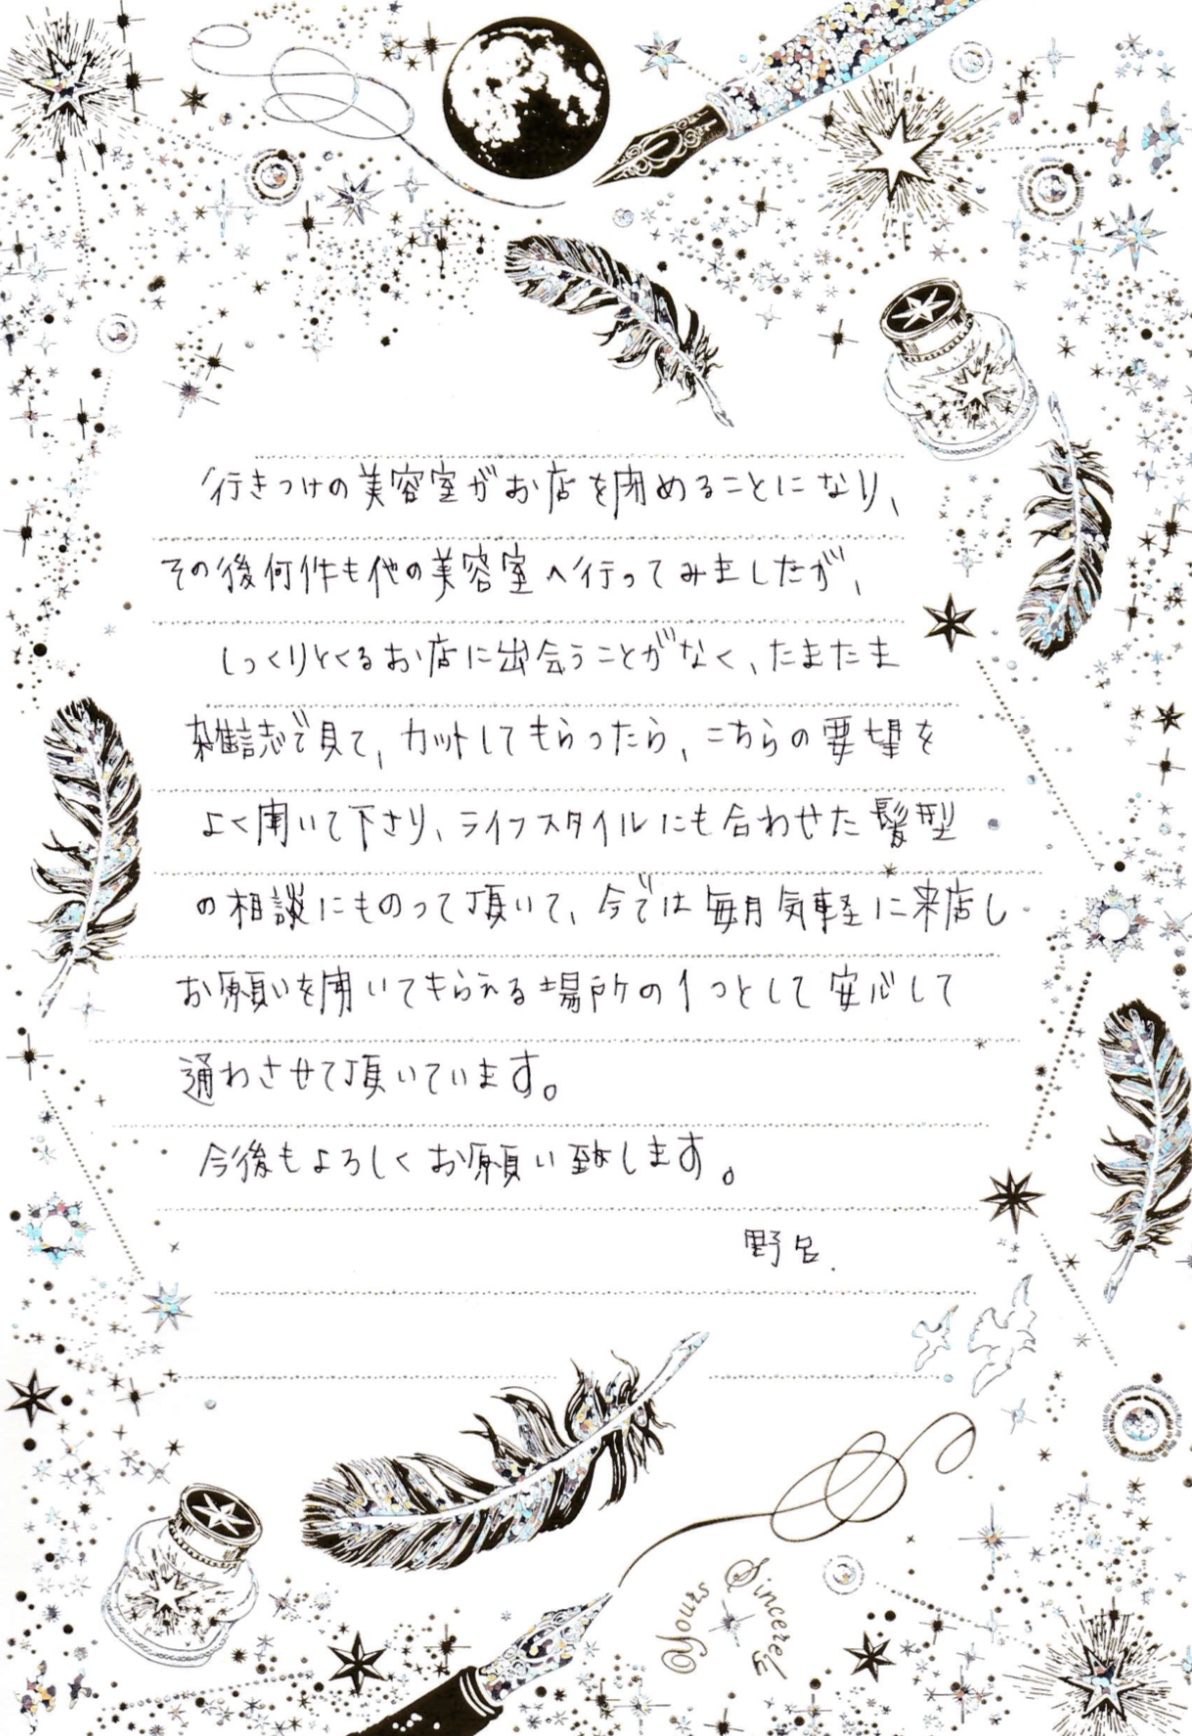 行きつけの美容室がお店を閉めることになり、
その後何件も他の美容室へ行ってみましたが、
しっくりとくるお店に出会うことがなく、たまたま
雑誌で見て、カットしてもらったら、こちらの要望を
よく聞いて下さり、ライフスタイルにも合わせた髪型
の相談にものって頂いて、今では毎月気軽に来店し
お願いを聞いてもらえる場所の1つとして安心して
通わさせて頂いています。
今後もよろしくお願い致します。
野呂.
Yours Sincerely